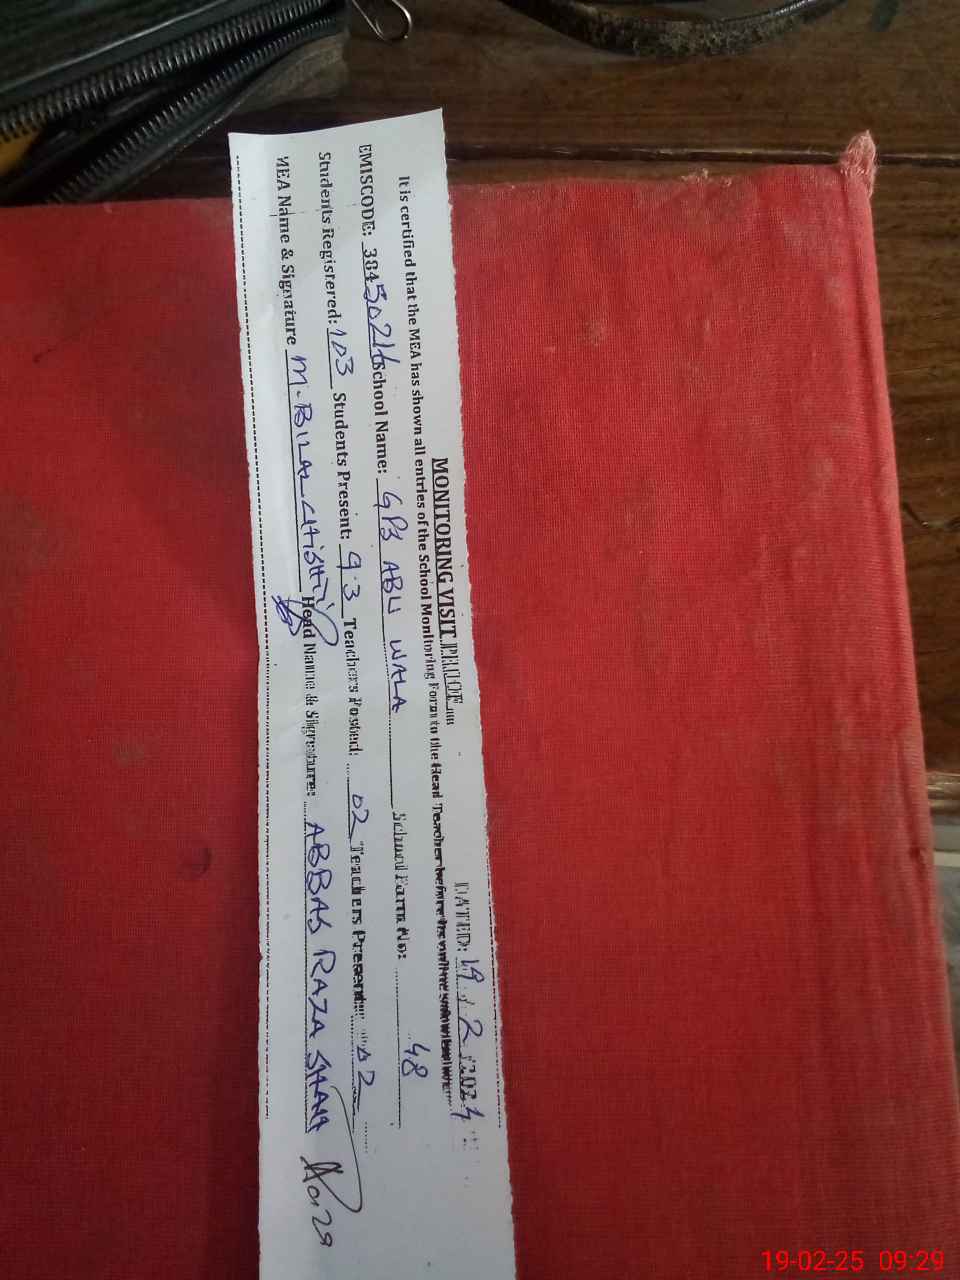 MONITORING VISIT PROOF
DATED: 19 / 2 /2024
It is certified that the MEA has shown all entries of the School Monitoring Form to the Head Teacher before its online submission.
EMISCODE: 38450216 School Name: GPS ABU WALA School Form No: 48
Students Registered: 103 Students Present: 93 Teachers Posted: 02 Teachers Present: 02
MEA Name & Signature M. BILAL CHISHTY Head Name & Signature: ABBAS RAZA SHAH
19-02-25 09:29